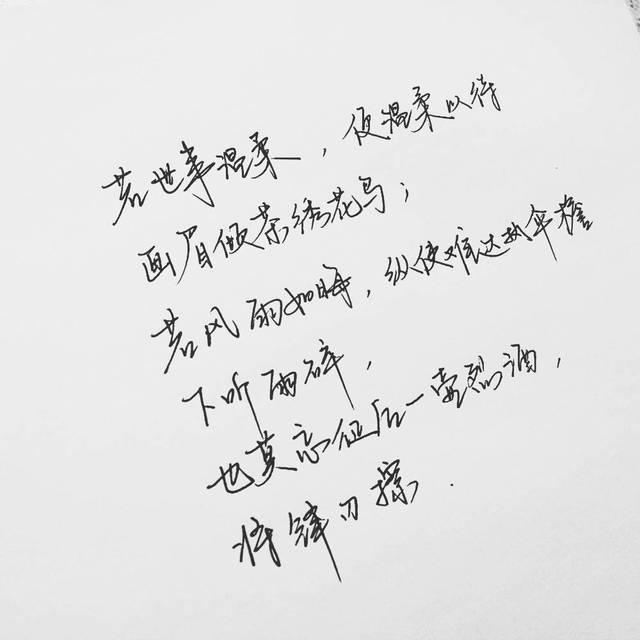 若世事温柔，便温柔以待
画眉倾茶绣花鸟；
若风雨如晦，纵使难达执伞檐
下听雨碎，
也莫忘征后一壶烈酒，
将锋刃擦.